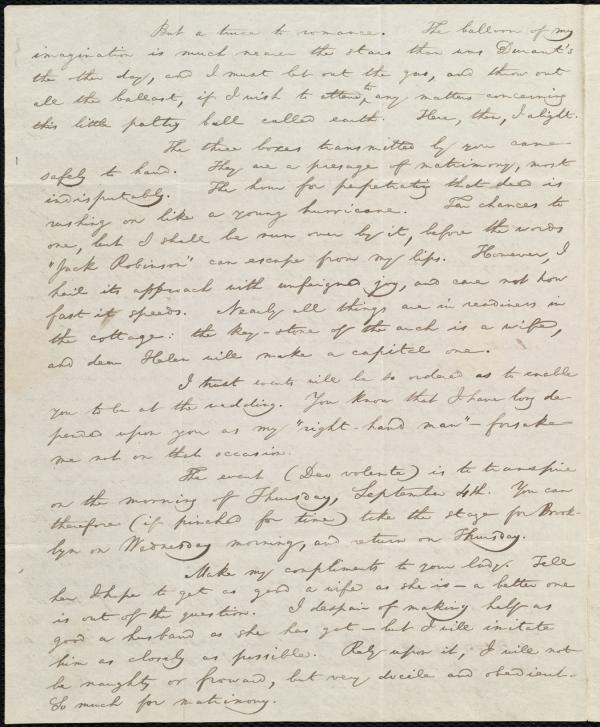 But a truce to romance. The balloon of my
imagination is much nearer the stars than was Durant's
the other day, and I must let out the gas, and throw out
all the ballast, if I wish to attend to any matters concerning
this little paltry ball called earth. Here, then, I alight.
The three boxes transmitted by you came
safely to hand. They are a presage of matrimony, most
indisputably. The hour for perpetrating that deed is
rushing on like a young hurricane. Ten chances to
one, but I shall be run over by it, before the words
"Jack Robinson" can escape from my lips. However, I
hail its approach with unfeigned joy, and care not how
fast it speeds. Nearly all things are in readiness in
the cottage: the key-stone of the arch is a wife,
and dear Helen will make a capital one.
I trust events will be so ordered as to enable
you to be at the wedding. You know that I have long de-
pended upon you as my "right-hand man" — forsake
me not on that occasion.
The event (Deo volente) is to transpire
on the morning of Thursday, September 4th. You can
therefore (if pinched for time) take the stage for Brook-
lyn on Wednesday morning, and return on Thursday.
Make my compliments to your lady. Tell
her I hope to get as good a wife as she is — a better one
is out of the question. I despair of making half as
good a husband as she has got — but I will imitate
him as closely as possible. Rely upon it, I will not
be naughty or froward, but very docile and obedient.
So much for matrimony.